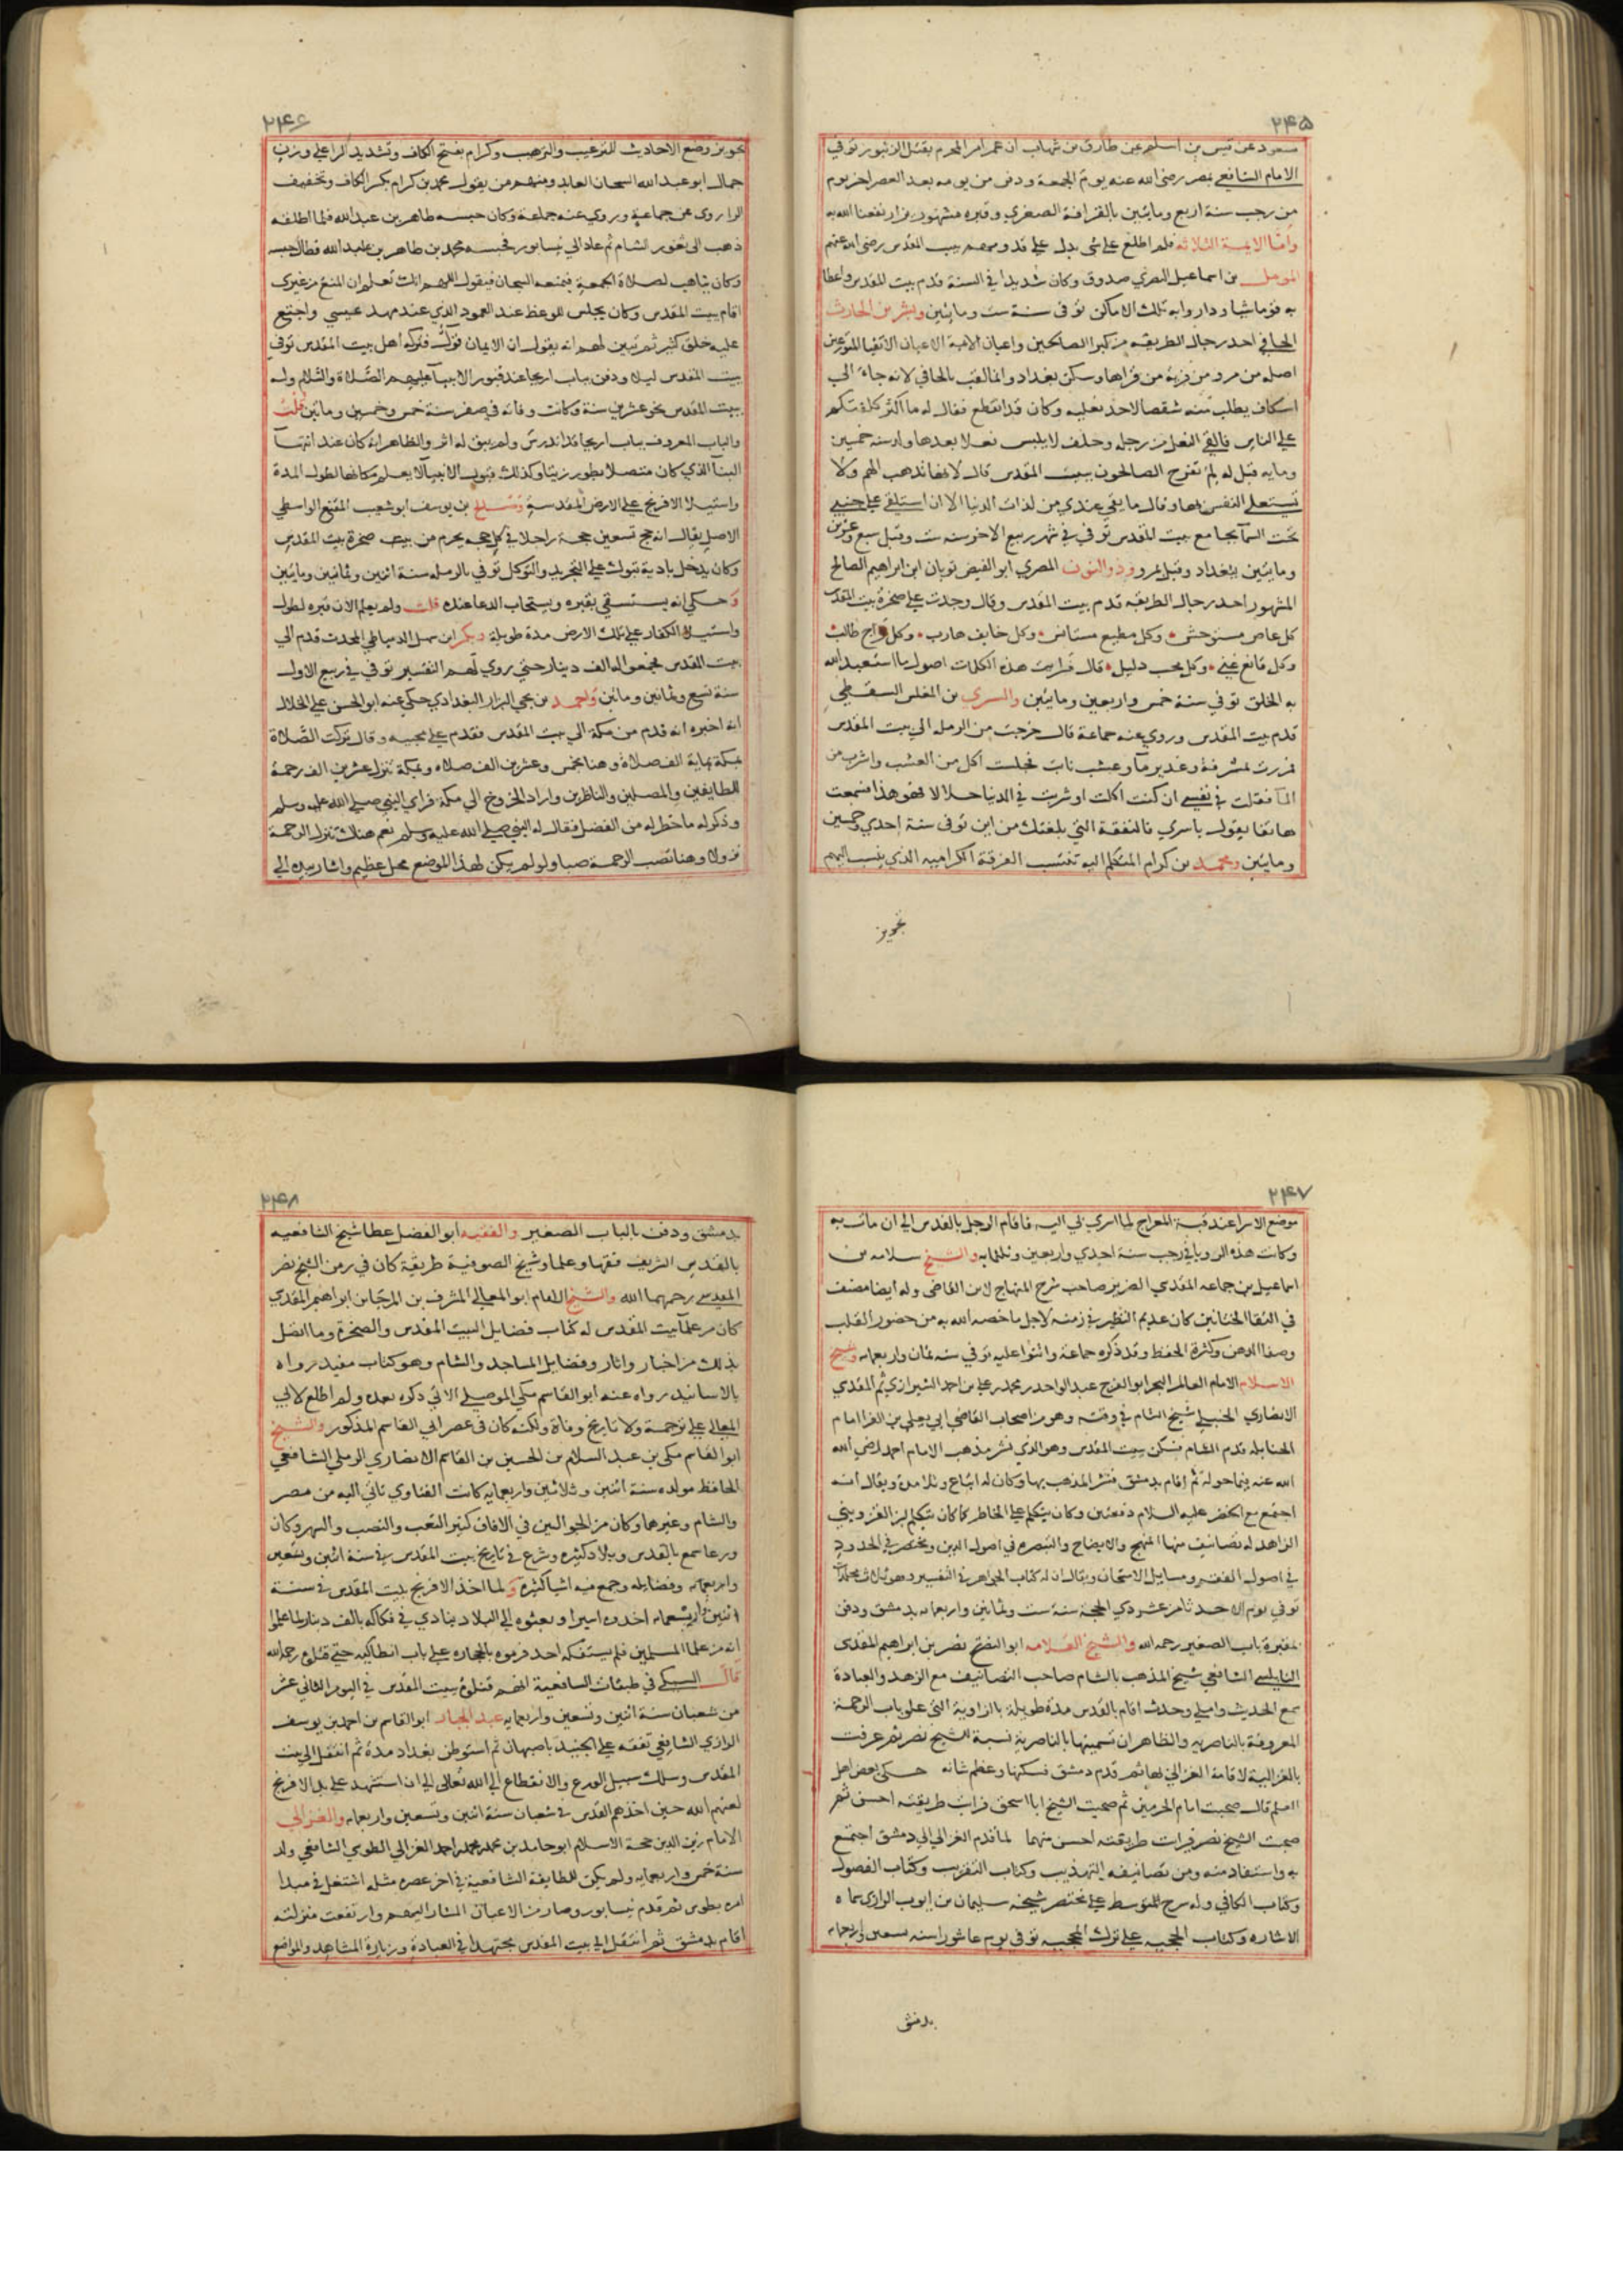 ٢٤٥
سعود عن قيس بن اسلم عن طارق بن شهاب ان عمر امر المحرم بقتل الزنبور توفي
الامام الشافعي بمصر رضي الله عنه يوم الجمعة ودفن من يومه بعد العصر اخر يوم
من رجب سنة اربع ومائتين بالقرافة الصغري وقبره مشهور يزار نفعنا الله به
واما الايمة الثلاثه فلم اطلع علي شي يدل علي قدومهم بيت المقدس رضي الله عنهم
المومل بن اسماعيل البصري صدوق وكان شديدا في السنة قدم بيت المقدس واعطا
به قوما شيا وداروا به تلك الاماكن توفي سنة ست ومايتين وبشر بن الحارث
الحافي احد رجال الطريقه من كبرا الصالحين واعيان الاتقيا المتورعين
اصله من مرو من قرية من قراها وسكن بغداد وانما لقب بالحافي لانه جاء الي
اسكاف يطلب منه شسعا لاحد نعليه وكان قد انقطع فقال له ما اكثر كلفتكم
علي الناس فالقي النعل من رجله وحلف لا يلبس نعلا بعدها ولد سنه خمسين
ومايه قيل له لم تفرح الصالحون ببيت المقدس قال لانها تذهب الهم ولا
تستعلي النفس بها وقال ما بقي عندي من لذات الدنيا الا ان استلقي علي جنبي
تحت السما بجامع بيت المقدس توفي في شهر ربيع الاخر سنه ست وقيل سبع وعشرين
ومايتين ببغداد وقيل بمرو وذو النون المصري ابو الفيض ثوبان ابن ابراهيم الصالح
المشهور احد رجال الطريقه قدم بيت المقدس وقال وجدت علي صخرة بيت المقدس
كل عاص مستوحش • وكل مطيع مستانس • وكل خايف هارب • وكل راج طالب
وكل قانع غني • وكل محب ذليل • قال فرايت هذه الكلمات اصول ما استعبد الله
به الخلق توفي سنة خمس واربعين ومايتين والسري بن المغلس السقطي
قدم بيت المقدس وروي عنه جماعة قال خرجت من الرمله الي بيت المقدس
فمررت بمشرفة وغدير ما وعشب نابت فجلست اكل من العشب واشرب من
الما فقلت في نفسي ان كنت اكلت او شربت في الدنيا حلالا فهو هذا فسمعت
هاتفا يقول يا سري فالنفقة التي بلغتك من اين توفي سنة احدي وخمسين
ومايتين ومحمد بن كرام المتكلم اليه تنتسب الفرقة الكراميه الذي ينسب اليهم
تجويز
٢٤٦
تجويز وضع الاحاديث للترغيب والترهيب وكرام بفتح الكاف وتشديد الرا علي وزن
جمال ابو عبد الله السجان العابد ومنهم من يقول محمد بن كرام بكسر الكاف وتخفيف
الرا روي عن جماعة وروي عنه جماعة وكان حبسه طاهر بن عبد الله فلما اطلقه
ذهب الي ثغور الشام ثم عاد الي نيسابور فحبسه محمد بن طاهر بن عبد الله فطال حبسه
وكان يتاهب لصلاة الجمعة فيمنعه السجان فيقول اللهم انك تعلم ان المنع من غيري
اقام ببيت المقدس وكان يجلس للوعظ عند العمود الذي عند مهد عيسي واجتمع
عليه خلق كثير ثم تبين لهم انه يقول ان الايمان قول فتركه اهل بيت المقدس توفي
ببيت المقدس ليلا ودفن بباب اريحا عند قبور الانبيا عليهم الصلاة والسلام وله
ببيت المقدس نحو عشرين سنة وكانت وفاته في صفر سنة خمس وخمسين ومايتين قلت
والباب المعروف بباب اريحا قد اندرس ولم يبق له اثر والظاهر انه كان عند انتها
البنا الذي كان متصلا بطور زيتا وكذلك قبور الانبيا لا يعلم مكانها لطول المدة
واستيلا الافرنج علي الارض المقدسة وصالح بن يوسف ابو شعيب المقنع الواسطي
الاصل يقال انه حج تسعين حجة راجلا في كل حجه يحرم من بيت صخرة بيت المقدس
وكان يدخل بادية تبوك علي التجريد والتوكل توفي بالرمله سنة اثنين وثمانين ومايتين
وحكي انه يستسقي بقبره ويستجاب الدعا عنده قلت ولم يعلم الان قبره لطول
واستيلا الكفار علي تلك الارض مدة طويلة وبكر ابن سهل الدمياطي المحدث قدم الي
بيت المقدس فجمعوا له الف دينار حتي روي لهم التفسير توفي في ربيع الاول
سنة تسع وثمانين ومائتين واحمد بن يحي البزار البغدادي حكي عنه ابو الحسن علي الخلال
انه اخبره انه قدم من مكة الي بيت المقدس فقدم علي مجيبه وقال تركت الصلاة
بمكة بماية الف صلاة وهنا بخمس وعشرين الف صلاه وبمكة تنزل عشرين الف رحمة
للطايفين والمصلين والناظرين واراد الخروج الي مكة فراي النبي صلي الله عليه وسلم
وذكر له ما خطر له من الفضل فقال له النبي صلي الله عليه وسلم نعم هناك تنزل الرحمة
نزولا وهنا تصب الرحمة صبا ولو لم يكن لهذا الموضع محل عظيم واشار بيده الي
٢٤٧
موضع الاسرا عند قبة المعراج لما اسري بي اليه فاقام الرجل بالقدس الي ان مات به
وكانت هذه الرويا في رجب سنة احدي واربعين وثلثمايه والشيخ سلامه بن
اسماعيل بن جماعه المقدسي الضرير صاحب شرح المفتاح لابن القاضي وله ايضا مصنف
في التقا الختانين كان عديم النظير في زمنه لاجل ما خصه الله به من حضور القلب
وصفا الذهن وكثرة الحفظ وقد ذكره جماعة واثنوا عليه توفي سنه ثمان واربعمايه وشيخ
الاسلام الامام العالم البحر ابو الفرج عبد الواحد بن محمد بن علي بن احمد الشيرازي ثم المقدسي
الانصاري الحنبلي شيخ الشام في وقته وهو من اصحاب القاضي ابي يعلي بن الفرا امام
الحنابله قدم الشام فسكن ببيت المقدس وهو الذي نشر مذهب الامام احمد رضي الله
الله عنه فيما حوله ثم اقام بدمشق فنشر المذهب بها وكان له اتباع وتلامذه ويقال انه
اجتمع مع الخضر عليه السلام دفعتين وكان يتكلم علي الخاطر كما كان يتكلم ابن القزويني
الزاهد له تصانيف منها المبهج والايضاح والتبصره في اصول الدين ومختصر في الحدود
في اصول الفقه ومسايل الامتحان ويقال ان له كتاب الجواهر في التفسير وهو ثلاث مجلدات
توفي يوم الاحد ثامن عشر ذي الحجة سنة ست وثمانين واربعمايه بدمشق ودفن
بمقبرة باب الصغير رحمه الله والشيخ العلامه ابو الفتح نصر بن ابراهيم المقدسي
النابلسي الشافعي شيخ المذهب بالشام صاحب التصانيف مع الزهد والعبادة
سمع الحديث واملي وحدث اقام بالقدس مدة طويلة بالزاوية التي علي باب الرحمة
المعروفة بالناصريه والظاهر ان تسميتها بالناصرية نسبة للشيخ نصر ثم عرفت
بالغزالية لاقامة الغزالي بها ثم قدم دمشق فسكنها وعظم شانه حكي بعض اهل
العلم قال صحبت امام الحرمين ثم صحبت الشيخ ابا اسحق فرايت طريقته احسن ثم
صحبت الشيخ نصر فرايت طريقته احسن منهما لما قدم الغزالي الي دمشق اجتمع
به واستفاد منه ومن تصانيفه التهذيب وكتاب التقريب وكتاب الفصول
وكتاب الكافي وله شرح المتوسط علي مختصر شيخه سليمان بن ايوب الرازي سماه
الاشاره وكتاب الحجه علي تارك المحجه توفي يوم عاشورا سنه تسعين واربعمايه
بدمشق
٢٤٨
بدمشق ودفن بالباب الصغير والفقيه ابو الفضل عطا شيخ الشافعيه
بالقدس الشريف فقها وعلما وشيخ الصوفية طريقة كان في زمن الشيخ نصر
المقدسي رحمهما الله والشيخ الامام ابو المعالي المشرف بن المرجا بن ابراهيم المقدسي
كان من علما بيت المقدس له كتاب فضايل البيت المقدس والصخرة وما اتصل
بذلك من اخبار واثار وفضايل المساجد والشام وهو كتاب مفيد رواه
بالاسانيد رواه عنه ابو القاسم مكي الموصلي الاتي ذكره بعده ولم اطلع لابي
المعالي علي ترجمة ولا تاريخ وفاة ولكنه كان في عصر ابي القاسم المذكور والشيخ
ابو القاسم مكي بن عبد السلام بن الحسين بن القاسم الانصاري الرملي الشافعي
الحافظ مولده سنة اثنين وثلاثين واربعمايه كانت الفتاوي تاتي اليه من مصر
والشام وغيرها وكان من الجوالين في الافاق كثير التعب والنصب والسهر وكان
ورعا سمع بالقدس وبلاد كثيره وشرع في تاريخ بيت المقدس في سنة اثنين وتسعين
واربعمايه وفضايله وجمع فيه اشيا كثيرة ولما اخذ الافرنج بيت المقدس في سنة
اثنين وتسعين واربعمايه اخذوه اسيرا وبعثوه الي البلاد ينادي في فكاكه بالف دينار لما علموا
انه من علما المسلمين فلم يستفكه احد فرموه بالحجاره علي باب انطاكيه حتي قتلوه رحمه الله
قال السبكي في طبقات الشافعية انهم قتلوه ببيت المقدس في اليوم الثاني عشر
من شعبان سنة اثنين وتسعين واربعمايه عبد الجبار ابو القاسم بن احمد بن يوسف
الرازي الشافعي تفقه علي الخجندي باصبهان ثم استوطن بغداد مدة ثم انتقل الي بيت
المقدس وسلك سبيل الورع والانقطاع الي الله تعالي الي ان استشهد علي يد الافرنج
لعنهم الله حين اخذهم القدس في شعبان سنة اثنين وتسعين واربعمايه والغزالي
الامام زين الدين حجة الاسلام ابو حامد بن محمد بن محمد بن احمد الغزالي الطوسي الشافعي ولد
سنة خمس واربعمايه ولم يكن للطايفة الشافعية في اخر عصره مثله اشتغل في مبدا
امره بطوس ثم قدم نيسابور وصار من الاعيان المشار اليهم وارتفعت منزلته
اقام بدمشق ثم انتقل الي بيت المقدس مجتهدا في العبادة وزيارة المشاهد والمواضع